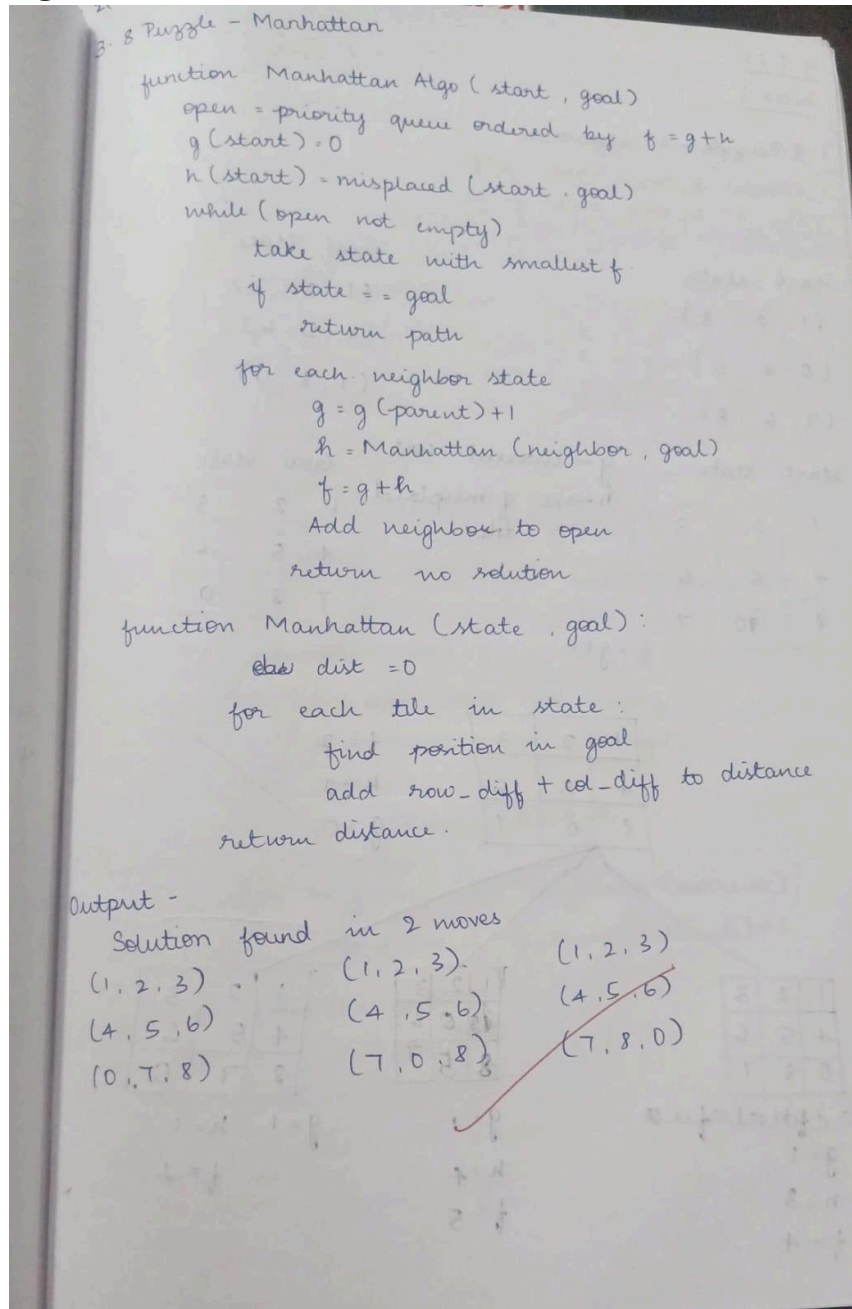 3. 8 Puzzle - Manhattan
function Manhattan Algo (start, goal)
open = priority queue ordered by f = g+h
g(start) = 0
h(start) = misplaced (start, goal)
while (open not empty)
take state with smallest f
if state == goal
return path
for each neighbor state
g = g(parent)+1
h = Manhattan (neighbor, goal)
f = g+h
Add neighbor to open
return no solution
function Manhattan (state, goal):
dist = 0
for each tile in state:
find position in goal
add row_diff + col_diff to distance
return distance.
Output -
Solution found in 2 moves
(1, 2, 3) (1, 2, 3) (1, 2, 3)
(4, 5, 6) (4, 5, 6) (4, 5, 6)
(0, 7, 8) (7, 0, 8) (7, 8, 0)